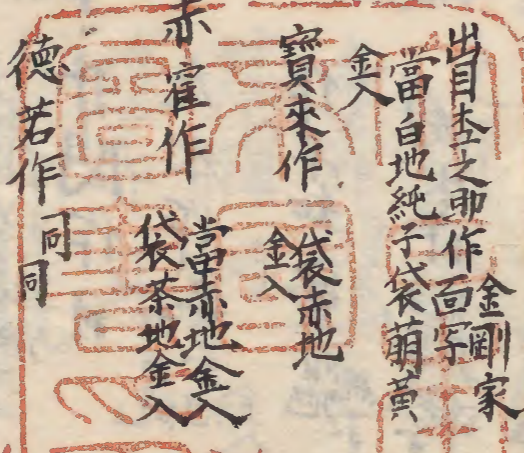 出目杢之助作 金剛家
面写
當白地純子袋萌黄
金入
寳來作 袋赤地
金入
赤霍作 當赤地金入
袋茶地金入
徳若作 同
同